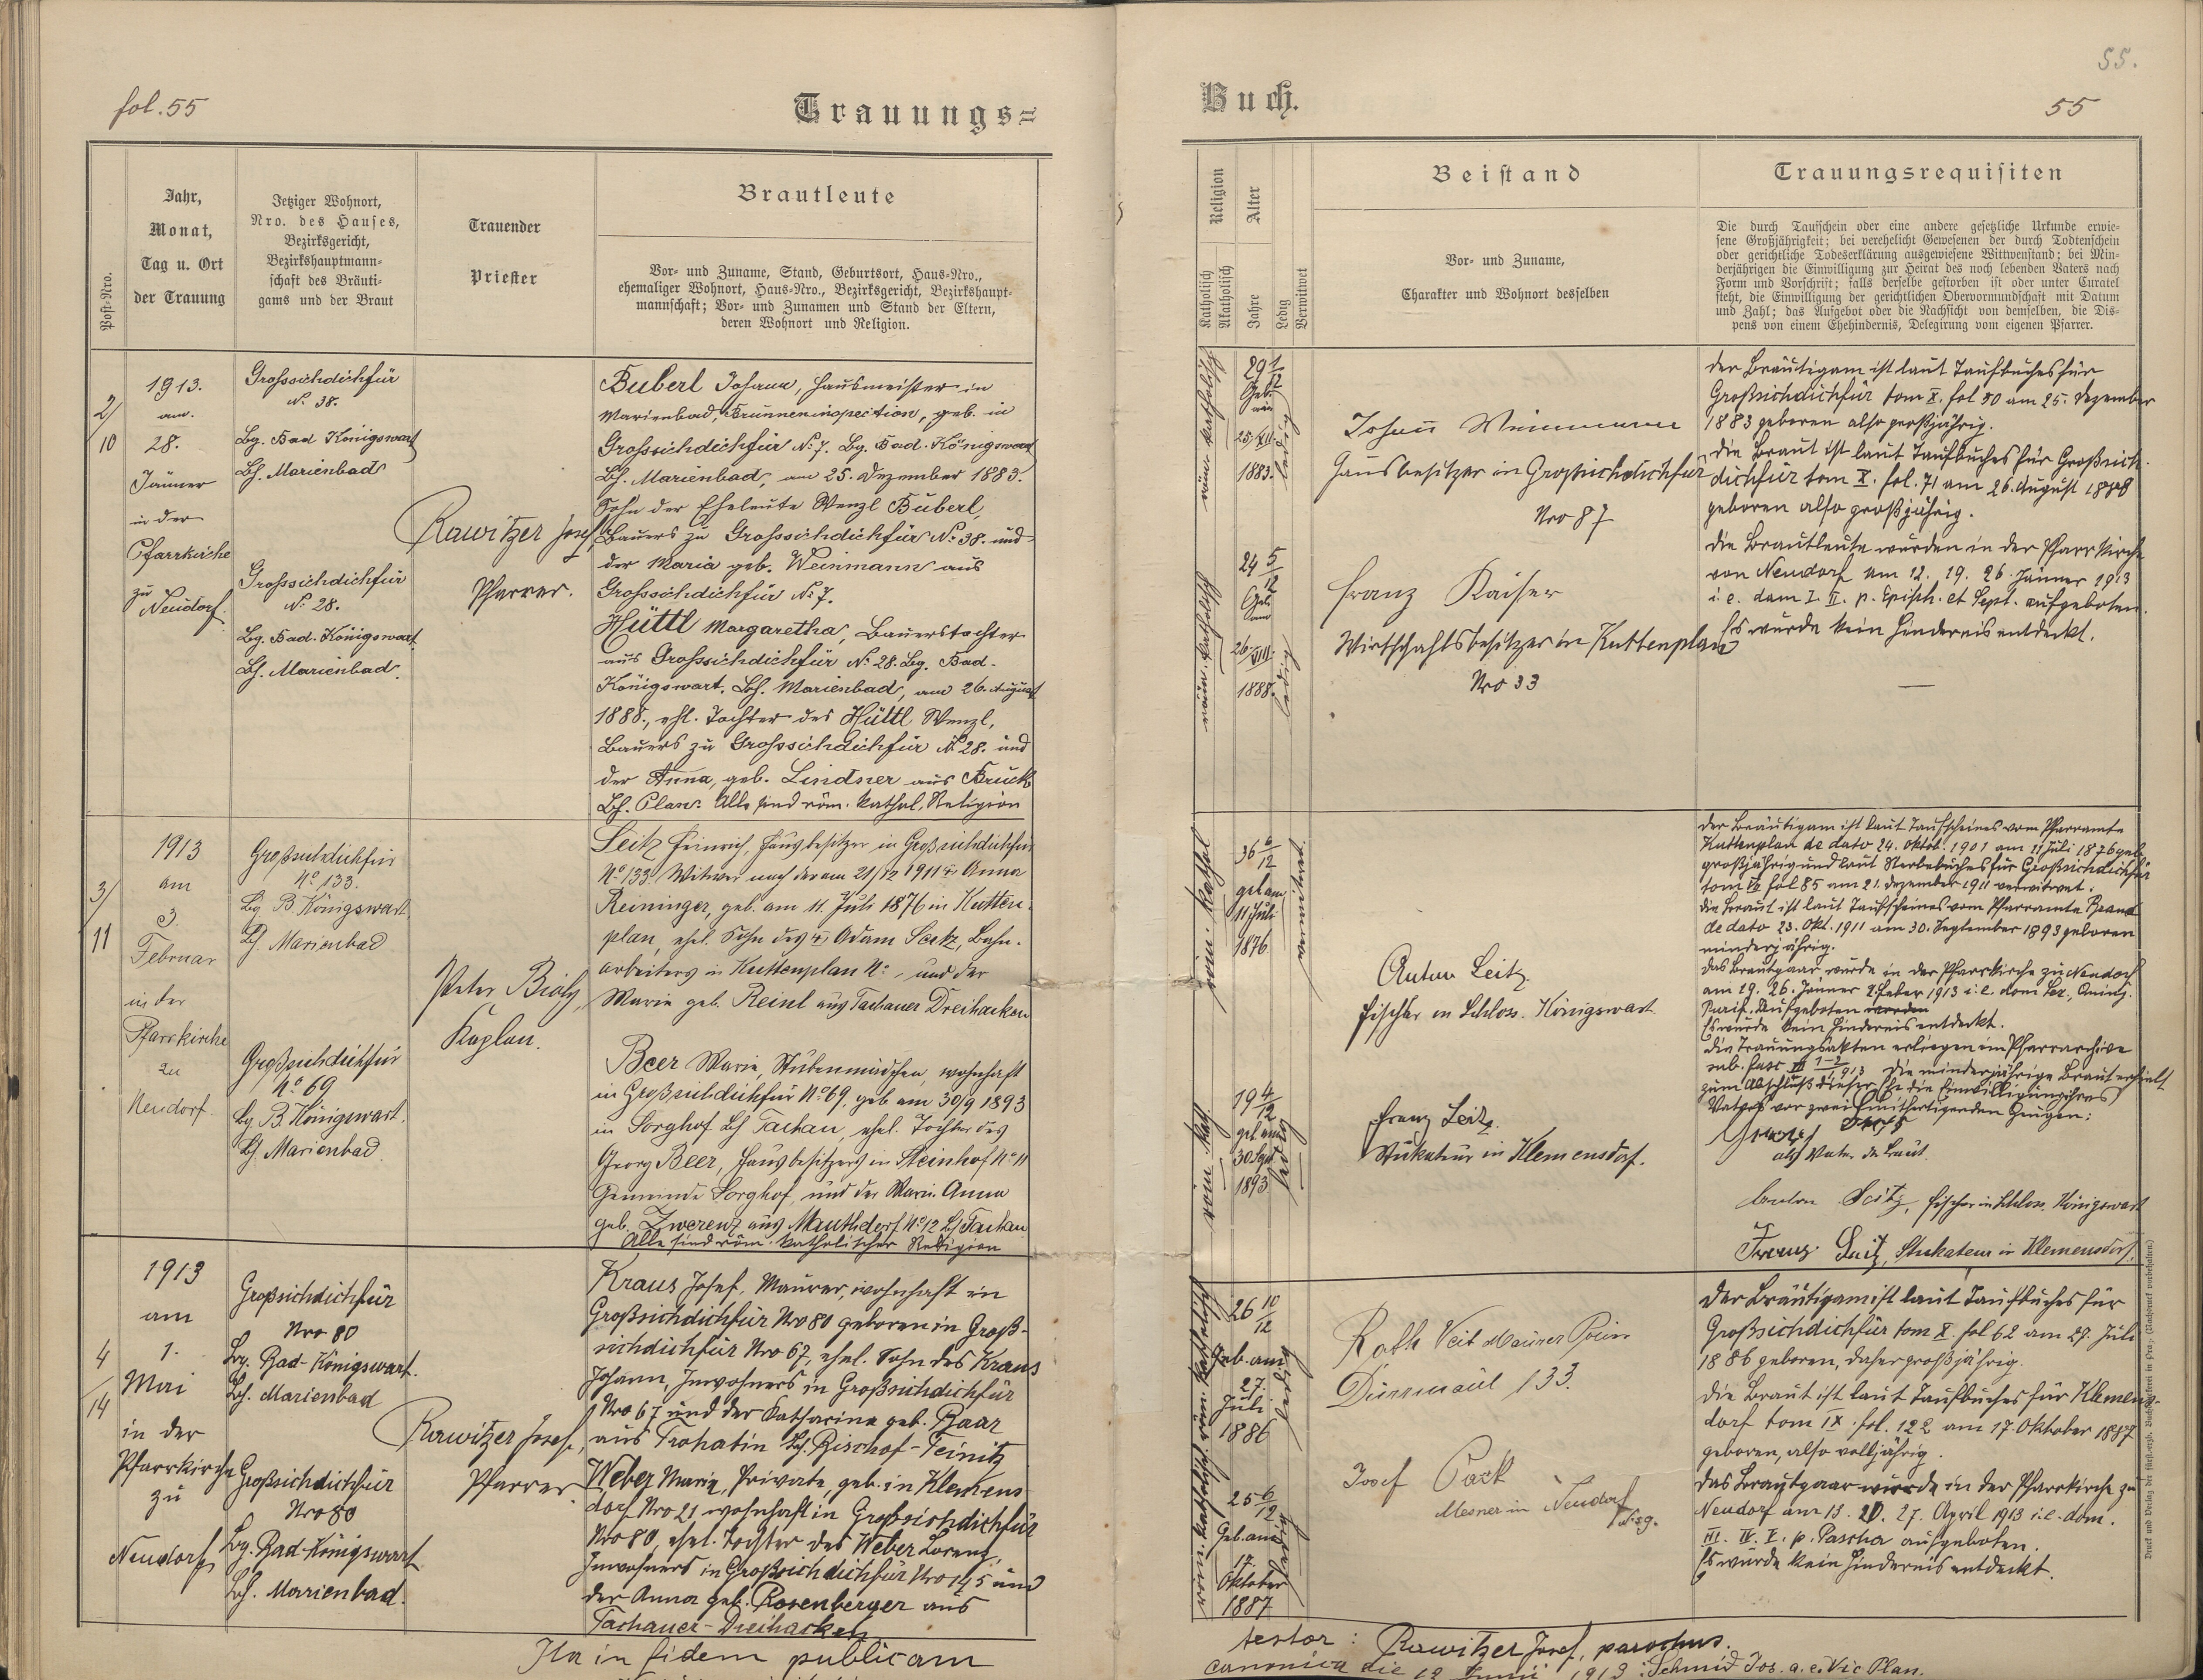 fol. 55
Trauungs=
Jahr,
Monat,
Tag u. Ort
der Trauung
Post-Nro.
Jetziger Wohnort,
Nro. des Hauses,
Bezirksgericht,
Bezirkshauptmann-
schaft des Bräuti-
gams und der Braut
Trauender
Priester
Brautleute
Vor- und Zuname, Stand, Geburtsort, Haus-Nro.,
ehemaliger Wohnort, Haus-Nro., Bezirksgericht, Bezirkshaupt-
mannschaft; Vor- und Zunamen und Stand der Eltern,
deren Wohnort und Religion.
2/
10
1913.
am
28.
Jänner
in der
Pfarrkirche
zu
Neudorf.
Grosssichdichfür
No. 38.
Bg. Bad Königswart
Bh. Marienbad
Grosssichdichfür
No. 28.
Bg. Bad-Königswart
Bh. Marienbad.
Rawitzer Josef,
Pfarrer.
Buberl Johann, Hausmeister in
Marienbad, Brunneninspection, geb. in
Grosssichdichfür No. 7. Bg. Bad-Königswart
Bh. Marienbad, am 25. Dezember 1883.
Sohn der Eheleute Wenzl Buberl,
Bauers zu Grosssichdichfür No. 38. und
der Maria geb. Weinmann aus
Grosssichdichfür No. 7.
Hüttl Margaretha, Bauerstochter
aus Grosssichdichfür No. 28. Bg. Bad-
Königswart, Bh. Marienbad, am 26. August
1888., ehl. Tochter des Hüttl Wenzl,
Bauers zu Grosssichdichfür No. 28. und
der Anna, geb. Lindner aus Bruck
Bh. Plan. Alle sind röm. kathol. Religion
3/
11
1913
am
3
Februar
in der
Pfarrkirche
zu
Neudorf.
Großsichdichfür
No 133.
Bg B. Königswart
Bh. Marienbad
Großsichdichfür
No 69
Bg. B. Königswart.
Bh. Marienbad
Peter Bialy,
Kaplan.
Seitz Heinrich, Hausbesitzer in Großsichdichfür
No 133. Witwer nach der am 21/12 1911 † Anna
Reininger, geb. am 11. Juli 1876 in Kutten-
plan, ehel. Sohn des † Adam Seitz, Bahn-
arbeiters in Kuttenplan No -, und der
Marie geb. Reinl aus Tachauer Dreihacken
Beer Marie, Stubenmädchen, wohnhaft
in Großsichdichfür No 69, geb am 30/9 1893
in Sorghof Bh Tachau, ehel. Tochter des
Georg Beer, Hausbesitzers in Steinhof No 11
Gemeinde Sorghof, und der Marie Anna
geb. Zwerenz aus Mauthdorf No 12 Bh Tachau
Alle sind röm. katholischer Religion
4
14
1913
am
1.
Mai
in der
Pfarrkirche
zu
Neudorf
Großsichdichfür
Nro 80
Bg. Bad-Königswart.
Bh. Marienbad
Großsichdichfür
Nro 80
Bg. Bad-Königswart
Bh. Marienbad.
Rawitzer Josef,
Pfarrer
Kraus Josef, Maurer, wohnhaft in
Großsichdichfür Nro 80 geboren in Groß-
sichdichfür Nro 67, ehel. Sohn des Kraus
Johann, Inwohners in Großsichdichfür
Nro 67 und der Katharina geb. Baar
aus Trohatin Bh. Bischof-Teinitz
Weber Maria, Private, geb. in Klemens
dorf Nro 21 wohnhaft in Großsichdichfür
Nro 80, ehel. Tochter des Weber Lorenz,
Inwohners in Großsichdichfür Nro 145 und
der Anna geb. Rosenberger aus
Tachauer-Dreihacken
Ita in fidem publicam
55.
Buch.
55
Religion
Katholisch
Akatholisch
Alter
Jahre
Ledig
Verwitwet
Beistand
Vor- und Zuname,
Charakter und Wohnort desselben
Trauungsrequisiten
Die durch Taufschein oder eine andere gesetzliche Urkunde erwie-
sene Großjährigkeit; bei verehelicht Gewesenen der durch Todtenschein
oder gerichtliche Todeserklärung ausgewiesene Wittwenstand; bei Min-
derjährigen die Einwilligung zur Heirat des noch lebenden Vaters nach
Form und Vorschrift; falls derselbe gestorben ist oder unter Curatel
steht, die Einwilligung der gerichtlichen Obervormundschaft mit Datum
und Zahl; das Aufgebot oder die Nachsicht von demselben, die Dis-
pens von einem Ehehindernis, Delegirung vom eigenen Pfarrer.
röm. katholisch
29 1/12
Geb.
am
25/XII.
1883.
ledig
röm. katholisch
24 5/12
Geb
am
26/VIII.
1888.
ledig
Johann Weinmann
Hausbesitzer in Großsichdichfür
Nro 87
Franz Kaiser
Wirtschaftsbesitzer in Kuttenplan
Nro 33
Der Bräutigam ist laut Taufbuches für
Großsichdichfür tom X. fol 50 am 25. Dezember
1883 geboren also großjährig.
Die Braut ist laut Taufbuches für Großsich-
dichfür tom X. fol. 71 am 26. August 1888
geboren also großjährig.
Die Brautleute wurden in der Pfarrkirche
von Neudorf am 12. 19. 26. Jänner 1913
i. e. dom I. II. p. Epiph. et Sept. aufgeboten.
Es wurde kein Hindernis entdeckt.
röm. kathol
36 6/12
geb am
11 Juli
1876
verwitwet
röm kath
19 4/12
geb am
30 Sept
1893
ledig
Anton Seitz.
Fischer in Schloss. Königswart
Franz Seitz.
Stukateur in Klemensdorf.
Der Bräutigam ist laut Taufscheines vom Pfarramte
Kuttenplan de dato 24. Oktob. 1901 am 11 Juli 1876 geb.
großjährig und laut Sterbebuches für Großsichdichfür
tom fol 85 am 21. Dezember 1911 verwitwet.
Die Braut ist laut Taufscheines vom Pfarramte Brand
de dato 23. Okt. 1911 am 30. September 1893 geboren
minderjährig.
Das Brautpaar wurde in der Pfarrkirche zu Neudorf
am 19. 26. Jänner 2 Feber 1913 i. e. dom
Purif. Aufgeboten worden
Es wurde kein Hindernis entdeckt.
Die Trauungsakten erliegen im Pfarrarchive
sub. fasc 1-2 1913 Die minderjährige Braut erhielt
zum Abschluß dieser Ehe die Einwilligung ihres
Vaters vor zwei mitfertigenden Zeugen:
als Vater der Braut.
Anton Seitz, Fischer in Schloss. Königswart
Franz Seitz, Stukateur in Klemensdorf.
röm. katholisch
26 10/12
Geb. am
27.
Juli
1886
ledig
röm. katholisch
25 6/12
Geb. am
17.
Oktober
1887
ledig
Roth Veit Maurer Polier
Dürrmaul 133.
Josef Pack
Mesner in Neudorf
No. 39.
Der Bräutigam ist laut Taufbuches für
Großsichdichfür tom X. fol 62 am 27. Juli
1886 geboren, daher großjährig.
Die Braut ist laut Taufbuches für Klemens-
dorf tom IX. fol. 122 am 17. Oktober 1887
geboren, also volljährig.
Das Brautpaar wurde in der Pfarrkirche zu
Neudorf am 13. 20. 27. April 1913 i. e. dom.
III. IV. V. p. Pascha aufgeboten.
Es wurde kein Hindernis entdeckt.
testor: Rawitzer Josef, parochus.
canonica die 12 Junii 1913: Schmid Jos. a. e. Vic Plan.